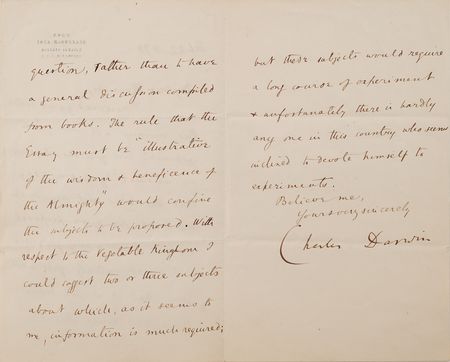 question, rather than to have
a general discussion compiled
from books. The rule that the
Essay must be "illustrative
of the wisdom & beneficence of
the Almighty" would confine
the subjects to be proposed. With
respect to the Vegetable Kingdom I
could suggest two or three subjects
about which, as it seems to
me, information is much required;
but these subjects would require
a long course of experiment
& unfortunately there is hardly
any one in this country who seems
inclined to devote himself to
experiments.
Believe me,
Yours very sincerely
Charles Darwin